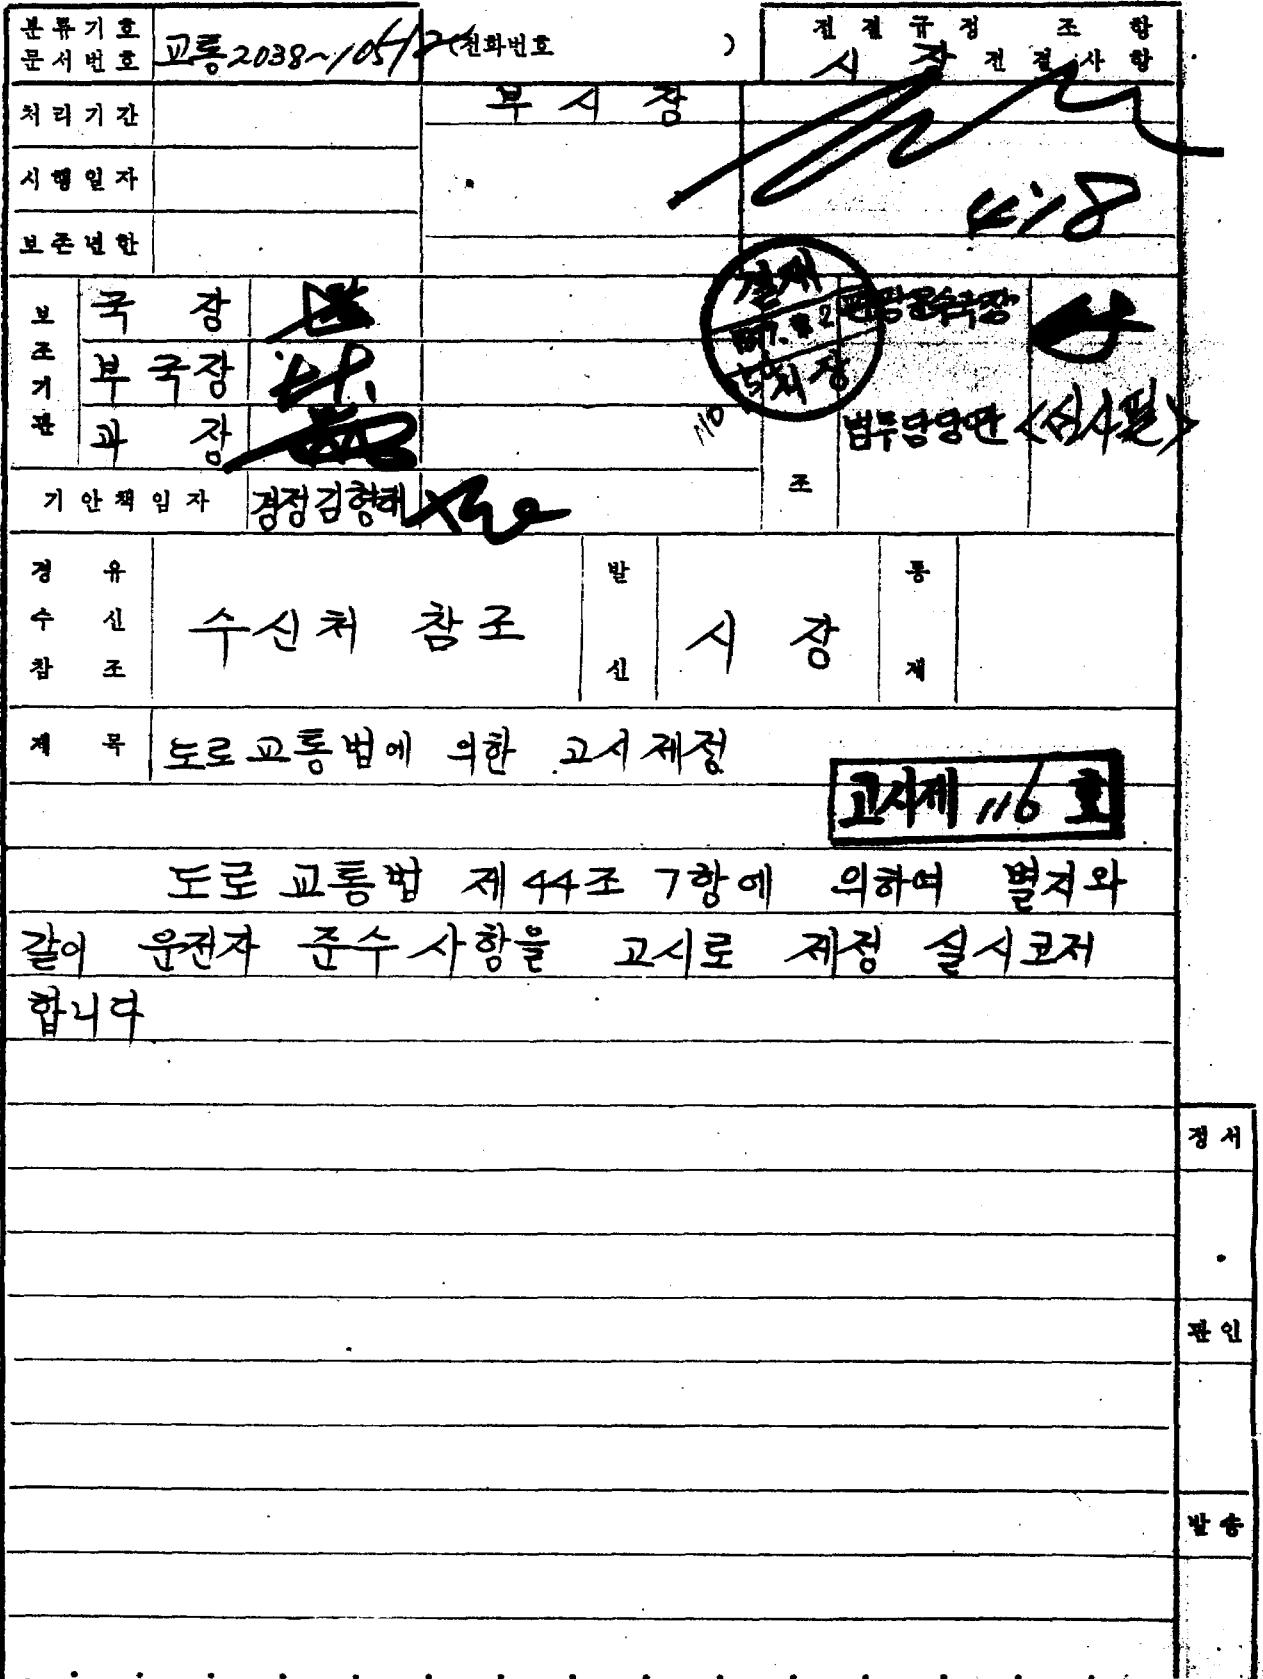 분류기호
문서번호
교통2038~
(전화번호 )
전결규정 조 항
시 장 전결사항
처리기간
부 시 장
시행일자
4.18
보존년한
보조기관
국 장
부국장
과 장
결재
시장
관광운수국장
법무담당관 <심사필>
조
기안책임자
경정김향태
경유
수신
참조
수신처 참조
발신
시 장
통제
제 목
도로교통법에 의한 고시제정
고시제 116 호
도로교통법 제44조 7항에 의하여 별지와
같이 운전자 준수사항을 고시로 제정 실시코저
합니다
정서
관인
발송